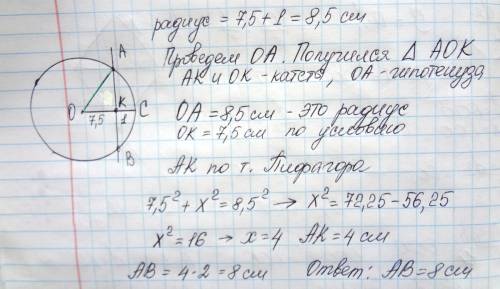 радиус = 7,5+1 = 8,5 см
Проведем ОА. Получился Δ АОК
АК и ОК - катеты, ОА - гипотенуза
ОА = 8,5 см - это радиус
ОК = 7,5 см по условию
АК по т. Пифагора
7,5² + x² = 8,5² → x² = 72,25 - 56,25
x² = 16 → x = 4 АК = 4 см
АВ = 4·2 = 8 см Ответ: АВ = 8 см
А
О К С
7,5 1
В